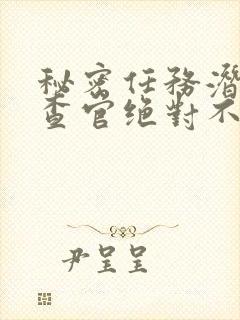 秘密任務潛
查官绝對不
尹呈呈